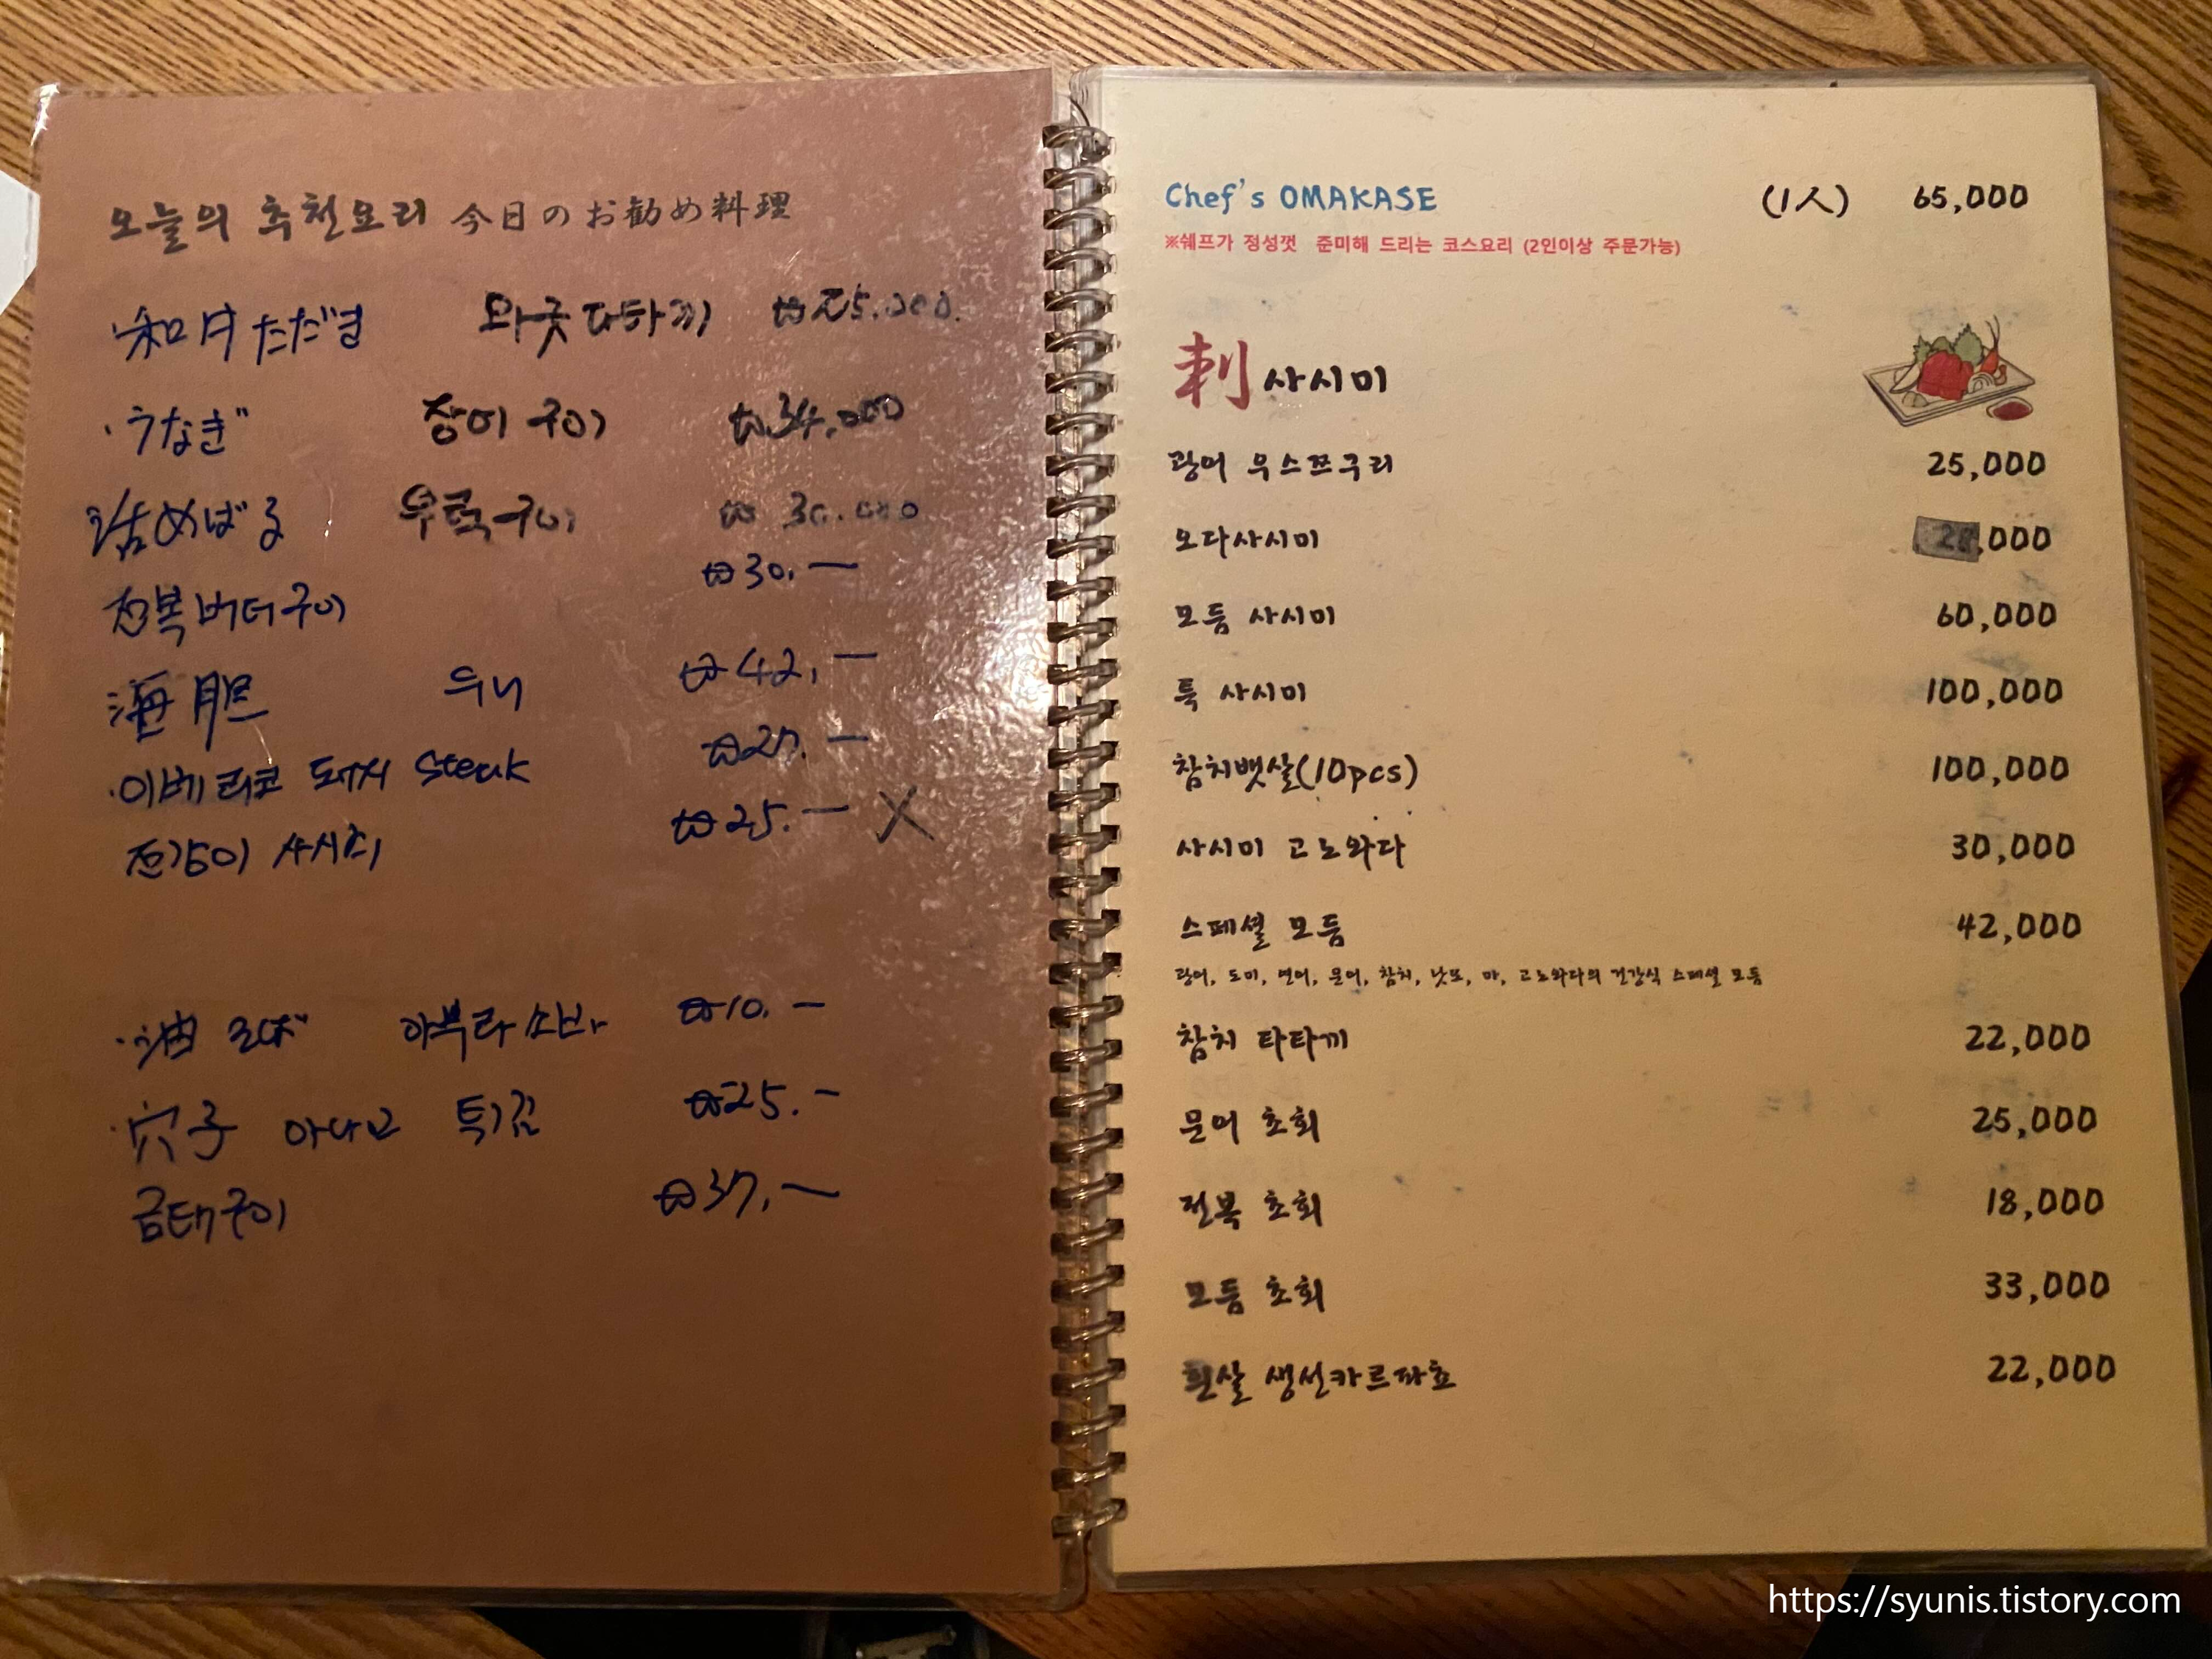 오늘의 추천요리 今日のお勧め料理
·和牛ただき 와규 다타끼 ₩25.000.
·うなぎ 장어 구이 ₩34,000
活めばる 우럭구이 ₩30.000
전복버터구이 ₩30.—
海胆 우니 ₩42,—
·이베리코 돼지 Steak ₩27.—
전갱이 사시미 ₩25.— X
·油そば 아부라소바 ₩10.—
·穴子 아나고 튀김 ₩25.—
금태구이 ₩37,—
Chef's OMAKASE (1人) 65,000
※쉐프가 정성껏 준비해 드리는 코스요리 (2인이상 주문가능)
刺 사시미
광어 우스쯔구리 25,000
오다사시미 28,000
모듬 사시미 60,000
특 사시미 100,000
참치뱃살(10pcs) 100,000
사시미 고노와다 30,000
스페셜 모듬 42,000
광어, 도미, 연어, 문어, 참치, 낫또, 마, 고노와다의 건강식 스페셜 모듬
참치 타타끼 22,000
문어 초회 25,000
전복 초회 18,000
모듬 초회 33,000
흰살 생선카르파쵸 22,000
https://syunis.tistory.com